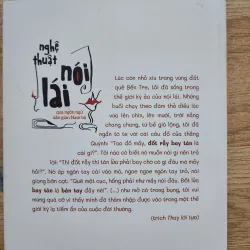 nghệ
thuật
nói
lái
qua ngôn ngữ
dân gian Nam bộ
Lúc còn nhỏ xíu trong vùng đất
quê Bến Tre, tôi đã sống trong
thế giới kỳ ảo của nói lái. Những
buổi chạy theo đám thả diều lúc
vạn lên chín, lên mười, trời nắng
chang chang, bị bể giò lòng, tôi đã
ngẩn tò te với cái câu đố của thằng
Quýnh: "Tao đố mầy, đốt rẫy bay tàn là
cái gì?". Tôi nào có biết nó muốn nói gì nên trả
lời: "Thì đốt rẫy thì tàn lửa phải bay chớ có gì đâu mà
mầy hỏi?". Nó áp ngón tay vào môi, ngoe ngoe ngón tay trỏ, nói
giọng bén cợt: "Quê một cục, tiếng phải như mầy nói đâu. Đốt lác
bay tàn là bàn tay đấy nè!". (...) như mở cờ trong bụng, tôi vui
mừng quá cỡ vì thấy mình đã thâm nhập được vào trong một thế
giới kỳ lạ tiềm ẩn của cuộc đời thường.
(trích Thay lời tựa)